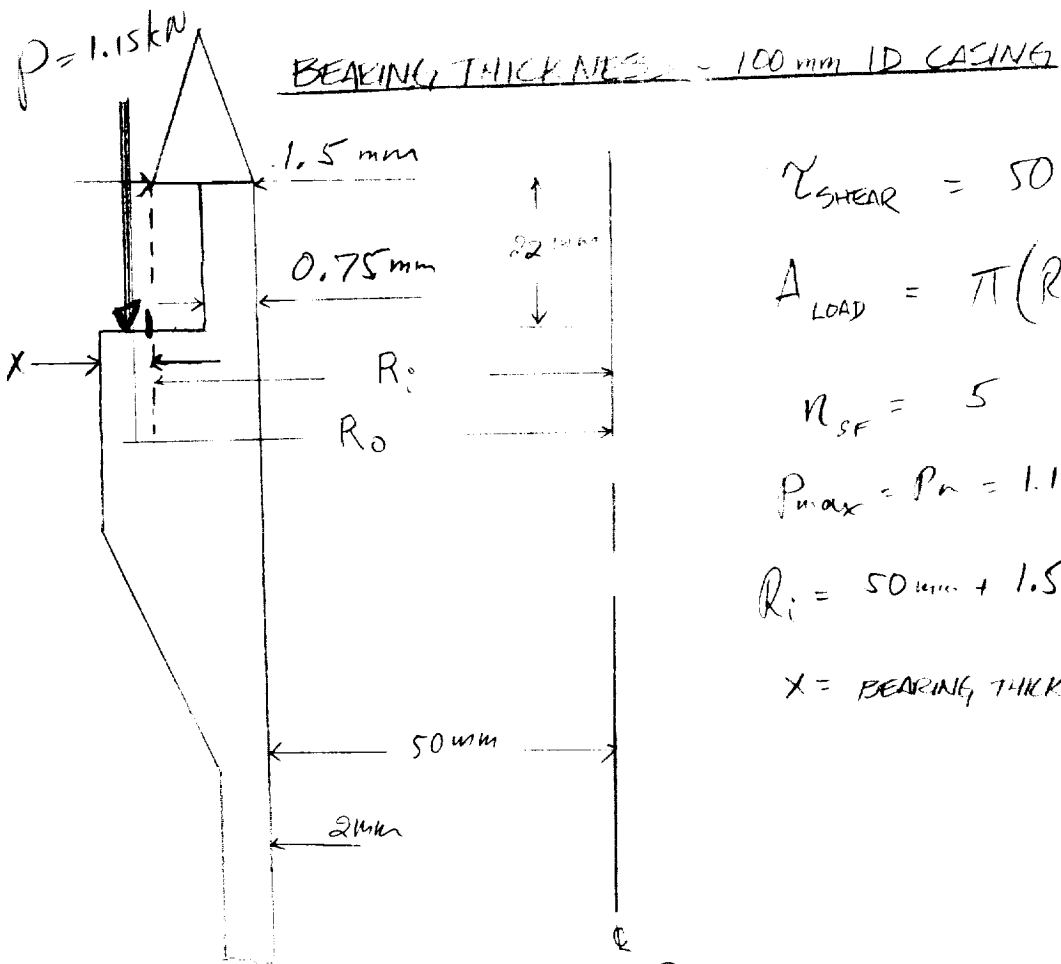 P = 1.15kN
BEARING THICKNESS - 100 mm ID CASING
1.5 mm
22 mm
0.75 mm
X
Ri
Ro
50 mm
2 mm
℄
τSHEAR = 50
ALOAD = π(R
nSF = 5
Pmax = Pn = 1.1
Ri = 50 mm + 1.5
X = BEARING THICK